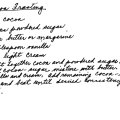 Frosting
cocoa
powdered sugar
butter or margarine
teaspoon vanilla
light cream
together cocoa and powdered sugar.
sugar mixture with butter.
and cream. add remaining cocoa-
and beat until desired consistency